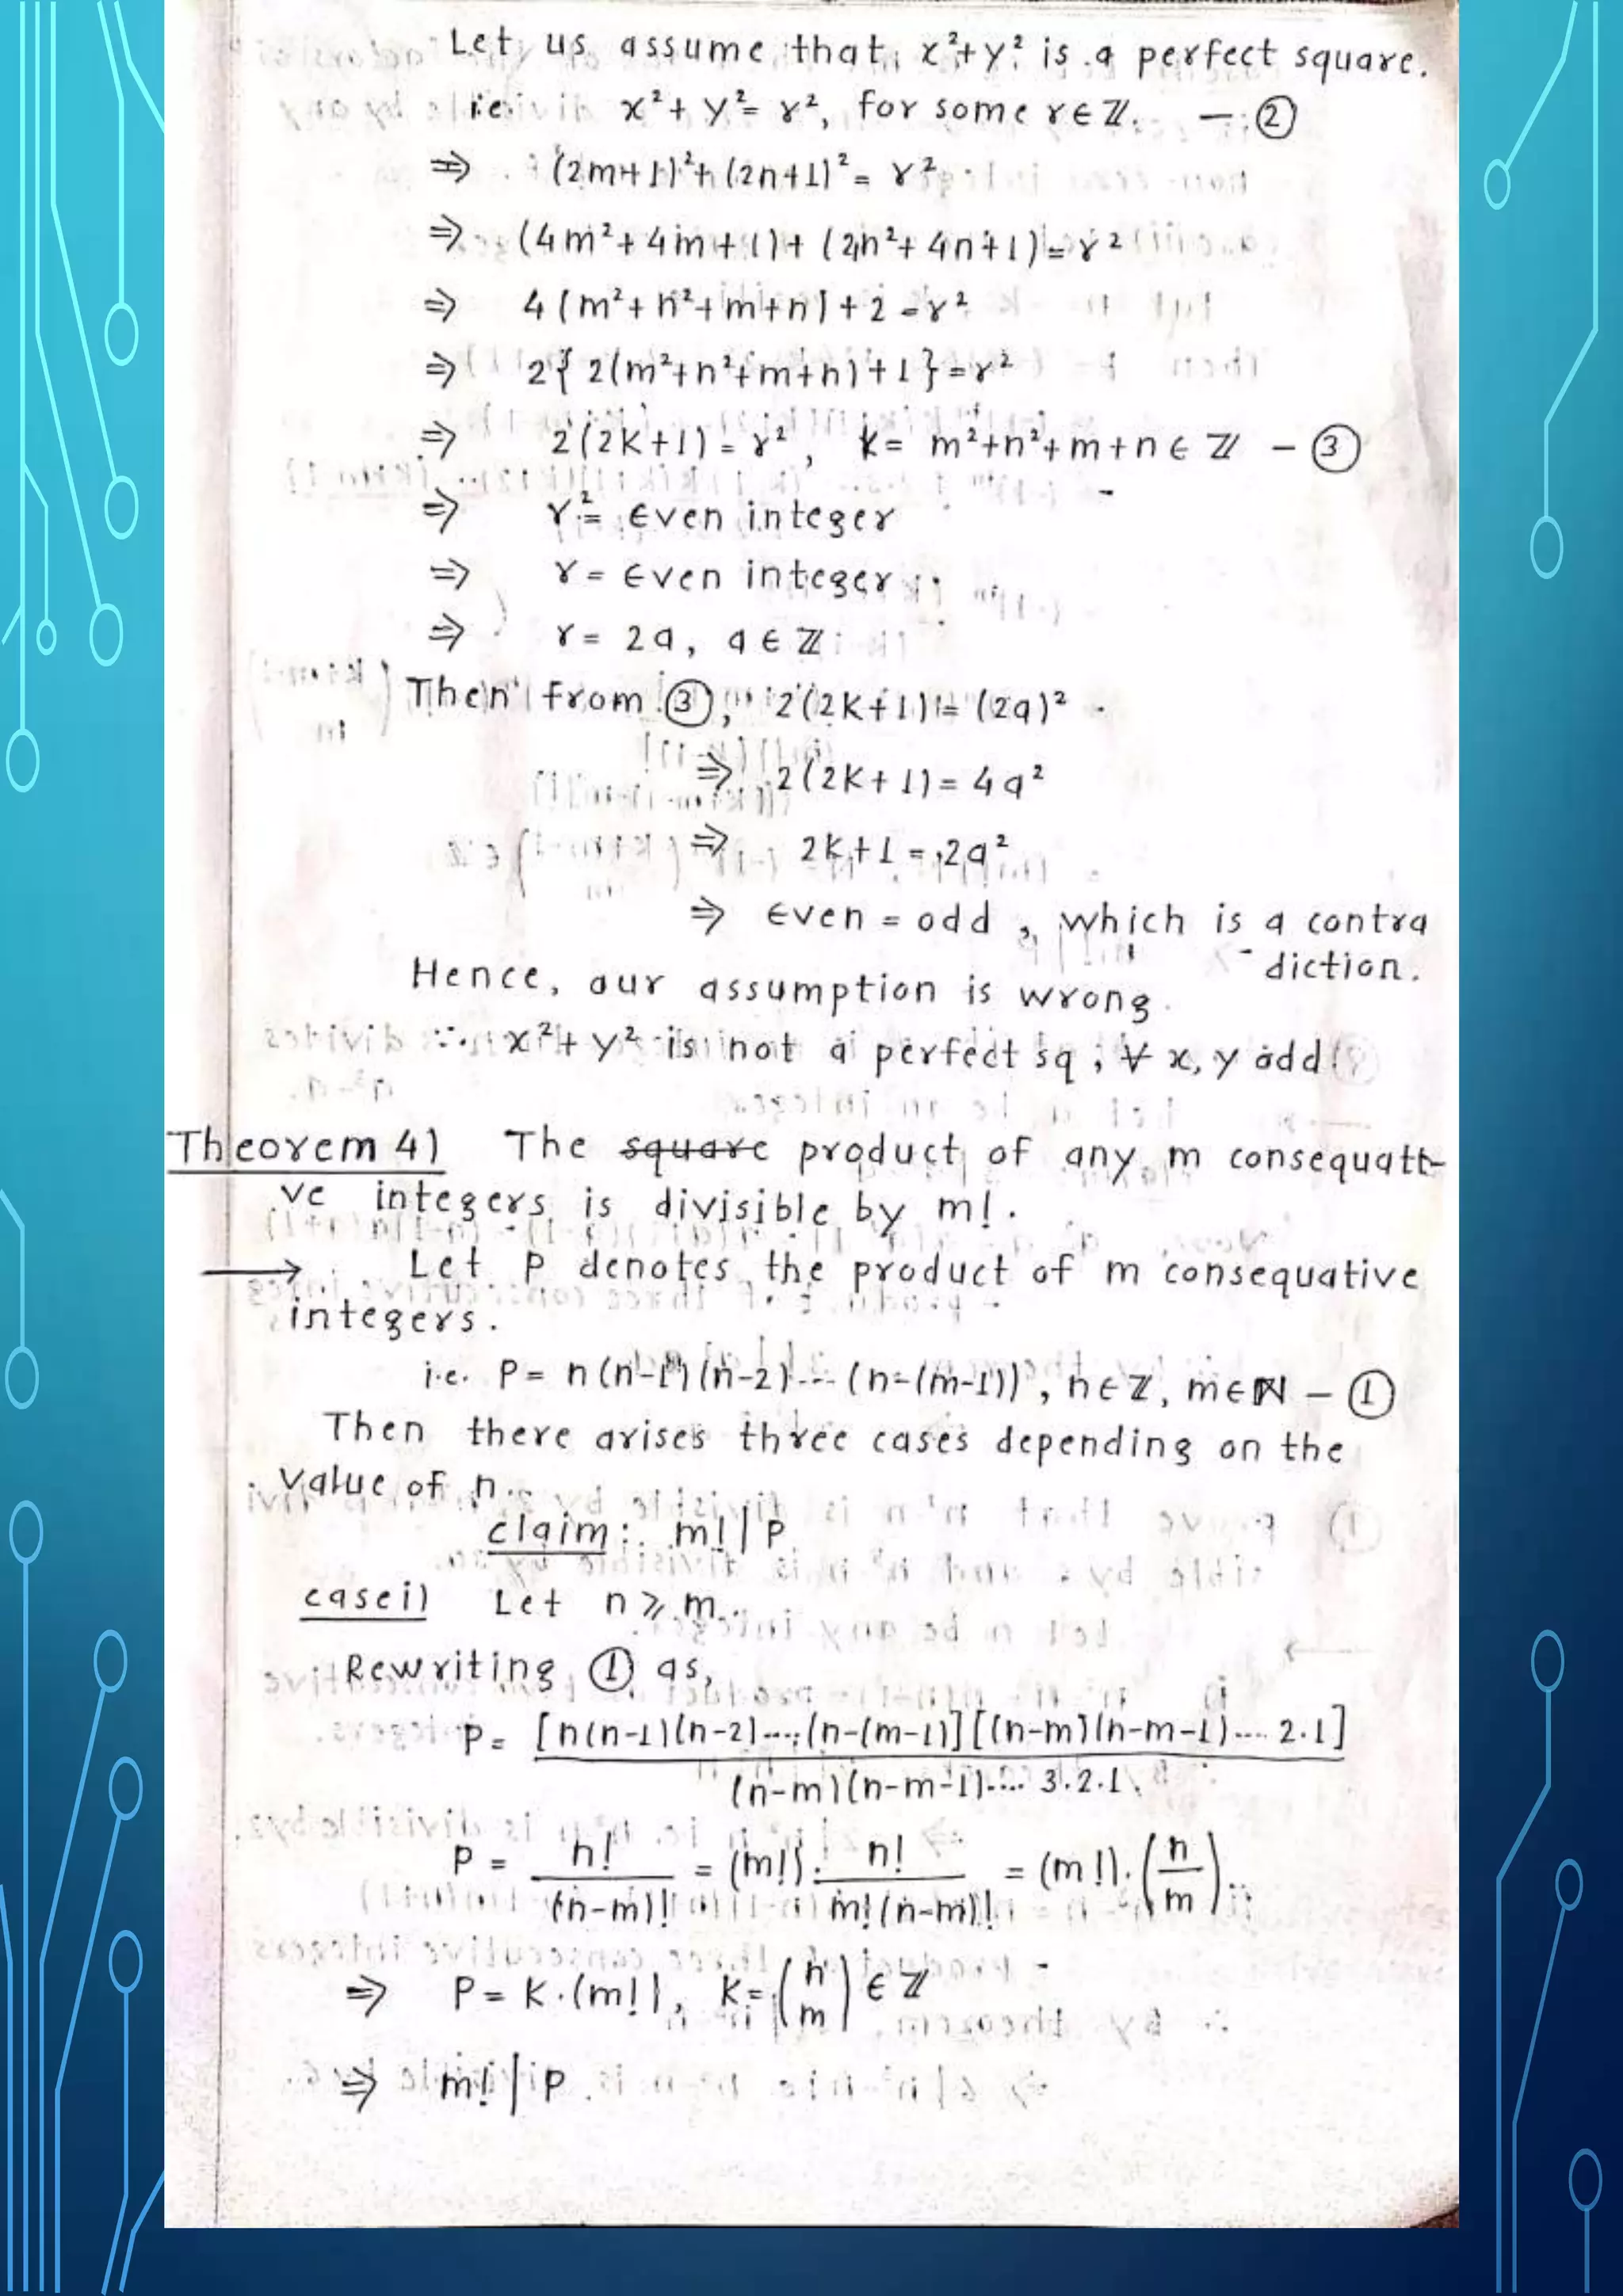 Let us assume that x²+y² is a perfect square.
i.e. x²+ y²= r², for some r∈ℤ. — ②
⇒ (2m+1)²+(2n+1)²= r²
⇒ (4m²+4m+1)+(4n²+4n+1)=r²
⇒ 4(m²+n²+m+n)+2=r²
⇒ 2{2(m²+n²+m+n)+1}=r²
⇒ 2(2k+1)=r², k= m²+n²+m+n∈ℤ — ③
⇒ r²= Even integer
⇒ r= Even integer
⇒ r= 2q, q∈ℤ
Then from ③, 2(2k+1)=(2q)²
⇒ 2(2k+1)=4q²
⇒ 2k+1=2q²
⇒ Even = odd, which is a contra
-diction.
Hence, our assumption is wrong.
∴ x²+y² is not a perfect sq, ∀ x,y odd.
Theorem 4) The square product of any m consequatt-
ve integers is divisible by m!.
→ Let P denotes the product of m consequative
integers.
i.e. P= n(n-1)(n-2)---(n-(m-1)), n∈ℤ, m∈ℕ — ①
Then there arises three cases depending on the
value of n.
claim: m!|P
case i) Let n⩾m.
Rewriting ① as,
P= [n(n-1)(n-2)----(n-(m-1)][(n-m)(n-m-1)....2.1]
(n-m)(n-m-1)....3.2.1
P = n!/(n-m)! = (m!). n!/m!(n-m)! = (m!).(n/m)
⇒ P= K.(m!), K=(n m)∈ℤ
⇒ m!|P